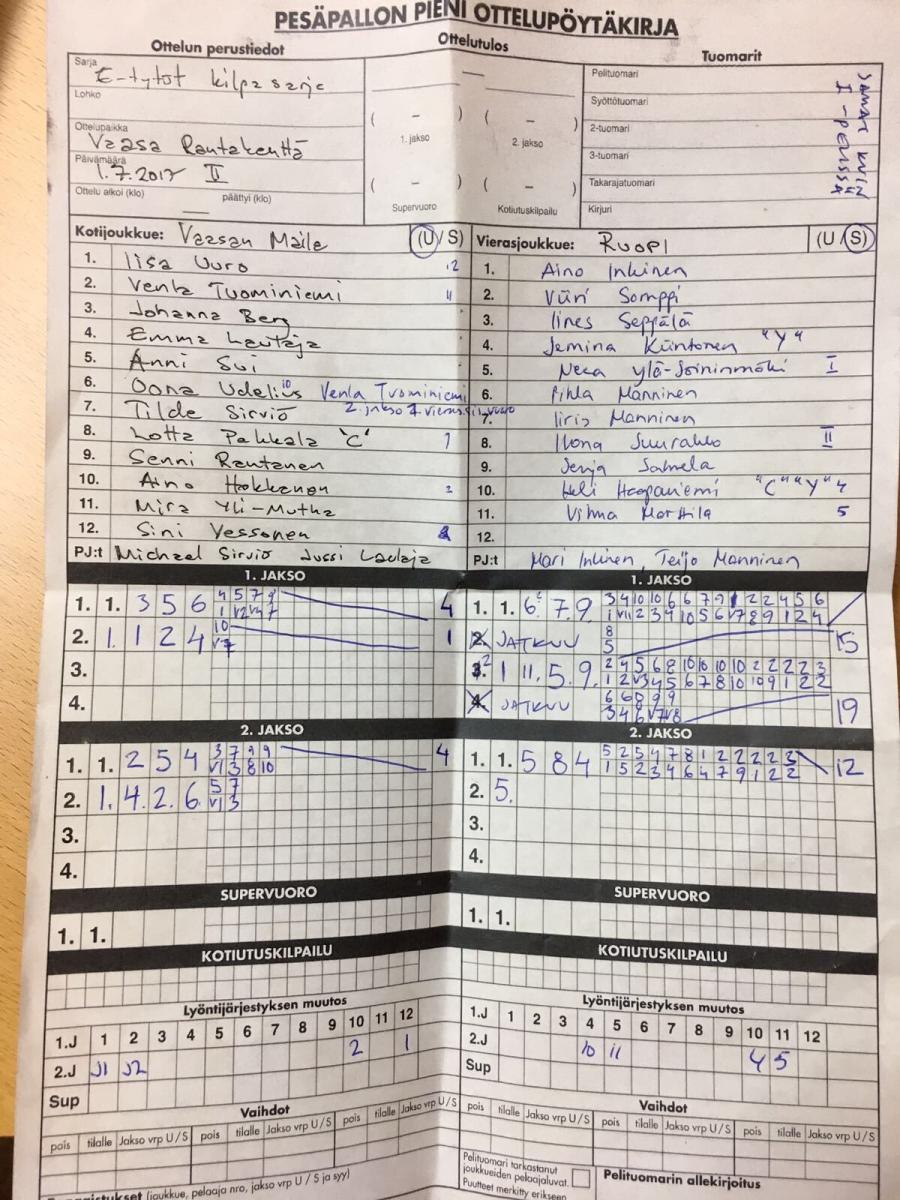 PESÄPALLON PIENI OTTELUPÖYTÄKIRJA
Ottelun perustiedot
Ottelutulos
Tuomarit
Sarja
E-tytöt kilpa sarja
Lohko
Ottelupaikka
Vaasa Rautakenttä
Päivämäärä
1.7.2017 II
Ottelu alkoi (klo) päättyi (klo)
( – ) ( – )
1. jakso 2. jakso
( – ) ( – )
Supervuoro Kotiutuskilpailu
Pelituomari
Syöttötuomari
2-tuomari
3-tuomari
Takarajatuomari
Kirjuri
SAMAT KUIN
I -PELISSÄ
Kotijoukkue: Vaasan Maila (U/S)
1. Iisa Uuro 12
2. Venla Tuominiemi 11
3. Johanna Berg
4. Emma Lautaja
5. Anni Sui
6. Oona Udelius 10 Venla Tuominiemi
7. Tilde Sirviö 2. jakso
8. Lotta Pakkala 'C' 1
9. Senni Rautanen
10. Aino Hakkanen 2
11. Mira Yli-Mutka
12. Sini Vessonen
PJ:t Michael Sirviö Jussi Lautaja
Vierasjoukkue: RUOPI (U/S)
1. Aino Inkinen
2. Viiri Somppi
3. Iines Seppälä
4. Jemina Kiintonen "Y"
5. Neea Ylä-Soininmäki I
6. Pihla Manninen
7. Iiris Manninen
8. Ilona Suurakko II
9. Senja Salmela
10. Heli Haapaniemi "C" "Y" 4
11. Vilma Marttila 5
12.
PJ:t Mari Inkinen, Teijo Manninen
1. JAKSO
1. 1. 3 5 6 4 5 7 9 4
1 V2 V4 7
2. 1. 1 2 4 10 1
V7
3.
4.
1. JAKSO
1. 1. 6. 7. 9. 3 4 10 10 6 6 7 9 1 2 2 4 5 6
1 V11 2 3 4 10 5 6 V7 8 9 1 2 4
2. JATKUU 8 15
5
3. 2 1 11. 5. 9. 2 4 5 6 8 10 10 10 10 2 2 2 2 3
1 2 V3 4 5 6 7 8 10 10 9 1 2 2
4. JATKUU 6 6 8 9 9 19
3 4 6 V7 V8
2. JAKSO
1. 1. 2 5 4 3 7 9 9 4
V1 3 8 10
2. 1. 4. 2. 6. 5 7
V1 3
3.
4.
2. JAKSO
1. 1. 5 8 4 5 2 5 4 7 8 1 2 2 2 2 3 12
1 5 2 3 4 6 4 7 9 1 2 2
2. 5.
3.
4.
SUPERVUORO
1. 1.
SUPERVUORO
1. 1.
KOTIUTUSKILPAILU
KOTIUTUSKILPAILU
Lyöntijärjestyksen muutos
1.J 1 2 3 4 5 6 7 8 9 10 11 12
2.J J1 J2 2 1
Sup
Lyöntijärjestyksen muutos
1.J 1 2 3 4 5 6 7 8 9 10 11 12
2.J 10 11 4 5
Sup
Vaihdot
pois tilalle Jakso vrp U / S pois tilalle Jakso vrp U / S pois tilalle Jakso vrp U / S
Vaihdot
pois tilalle Jakso vrp U / S pois tilalle Jakso vrp U / S pois tilalle Jakso vrp U / S
(joukkue, pelaaja nro, jakso vrp U / S ja syy)
Pelituomari tarkastanut
joukkueiden pelaajaluvat.
Puutteet merkitty erikseen
Pelituomarin allekirjoitus